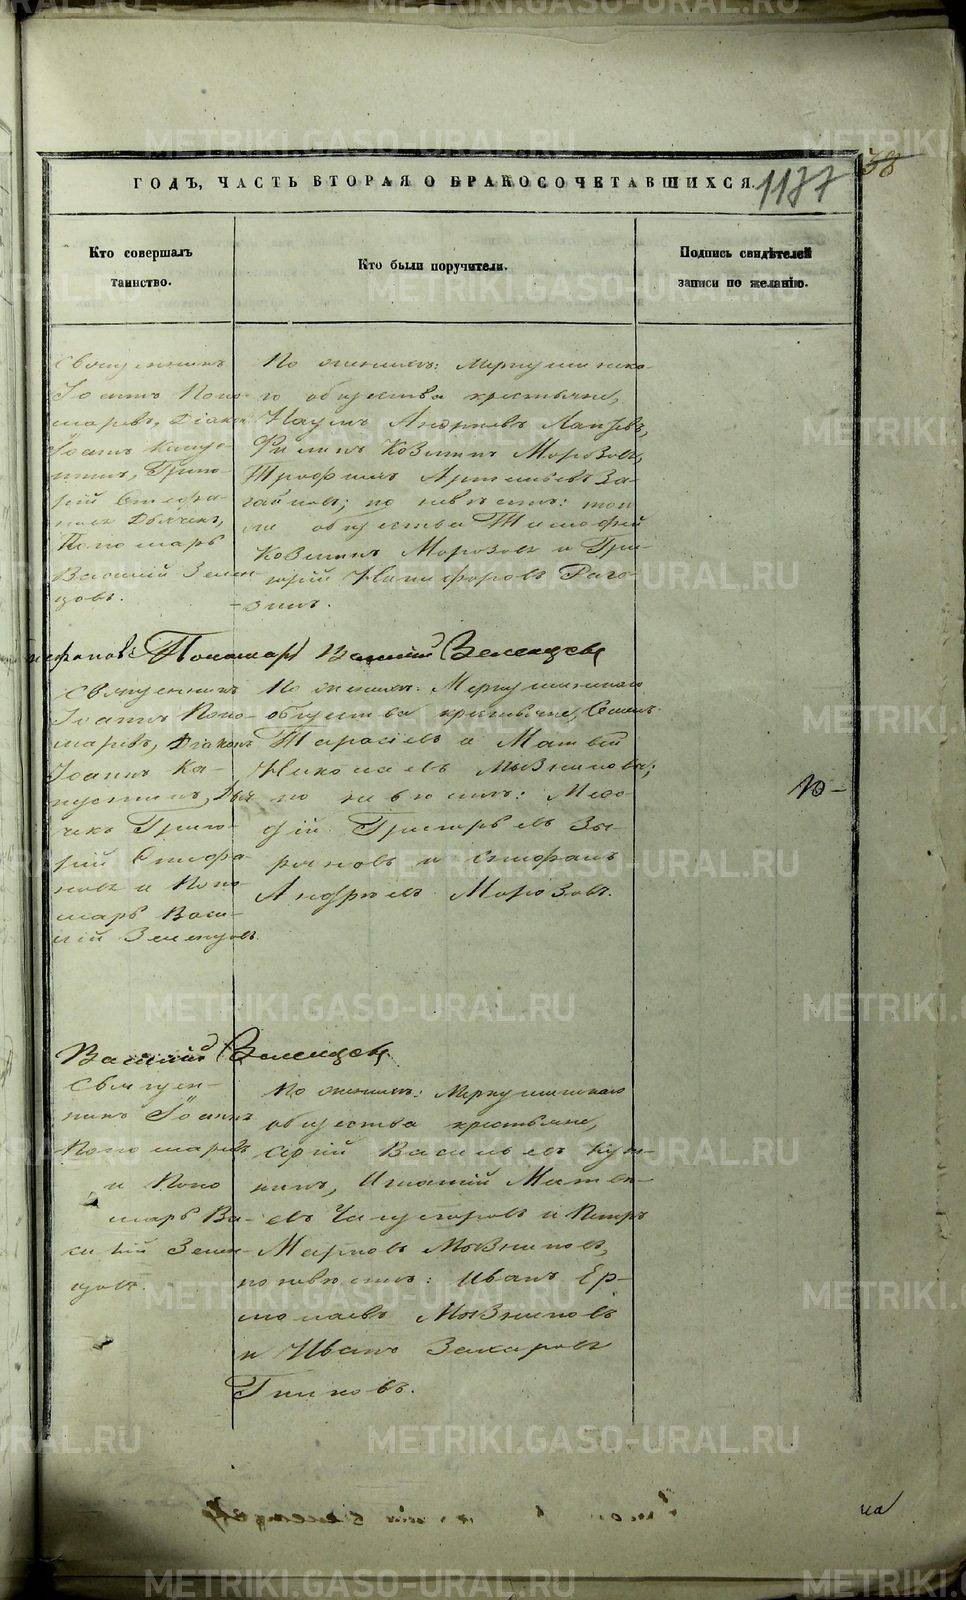 ГОДЪ, ЧАСТЬ ВТОРАЯ О БРАКОСОЧЕТАВШИХСЯ.
1177
38
Кто совершалъ
таинство.
Кто были поручители.
Подпись свидѣтелей
записи по желанію.
Священникъ
Іоаннъ Поно-
маревъ, Діаконъ
Іоаннъ Капус-
тинъ, Григо-
рій Стефа-
новъ Дьячекъ,
Пономарь
Василій Зелен-
цовъ.
По женихѣ: Меркушинска-
го общества крестьяне,
Наумъ Андреевъ
Филипъ Козминъ Морозовъ,
Трофимъ Артемьевъ За-
гайновъ; по невѣстѣ: той
же общества Тимофей
Козминъ Морозовъ и Гри-
горій Никифоровъ Раго-
зинъ.
Стефановъ Пономарь Василій Зеленцовъ
Священникъ
Іоаннъ Поно-
маревъ, Діаконъ
Іоаннъ Ка-
пустинъ, Дья-
чекъ Григо-
рій Стефа-
новъ и Поно-
марь Васи-
лій Зеленцовъ.
По женихѣ: Меркушинскаго
общества крестьяне, Семенъ
Тарасіевъ и Матвѣй
Николаевъ Мызниковы;
по невѣстѣ: Меѳо-
дій Григорьевъ Зы-
ряновъ и Стефанъ
Андреевъ Морозовъ.
Василій Зеленцовъ
Священ-
никъ Іоаннъ
Пономаревъ
и Поно-
марь Ва-
силій Зелен-
цовъ.
По женихѣ: Меркушинскаго
общества крестьяне,
Васильевъ
Игнатій Матве-
евъ и Петръ
Марковъ Мызниковъ,
по невѣстѣ: Иванъ Ер-
молаевъ Мызниковъ
и Иванъ Захаровъ
Гниковъ.
на
METRIKI.GASO-URAL.RU